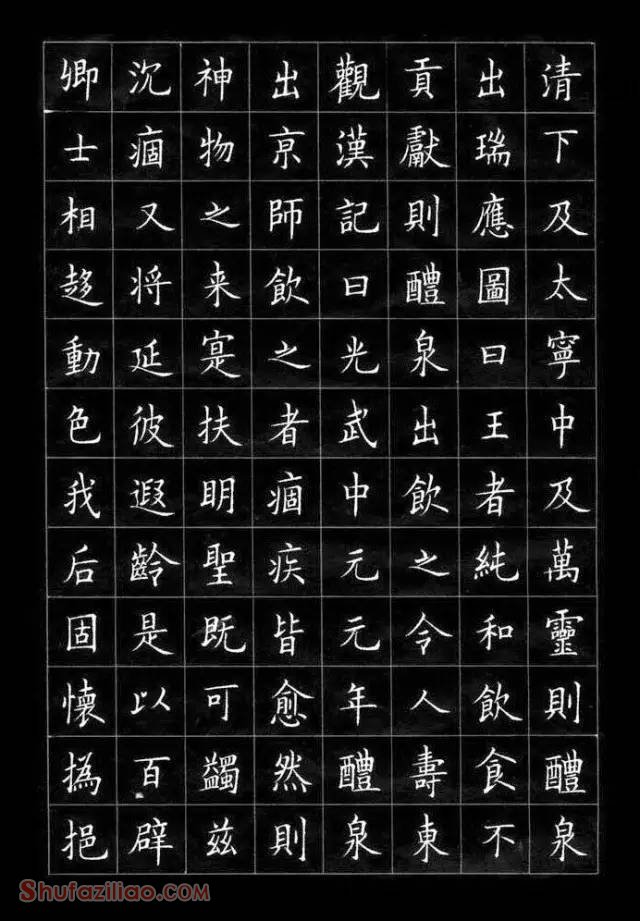 清下及太寧中及萬靈則醴泉
出瑞應圖曰王者純和飲食不
貢獻則醴泉出飲之令人壽東
觀漢記曰光武中元元年醴泉
出京師飲之者痼疾皆愈然則
神物之来寔扶明聖既可蠲兹
沉痼又将延彼遐齡是以百辟
卿士相趍動色我后固懷撝挹
Shufaziliao.COM